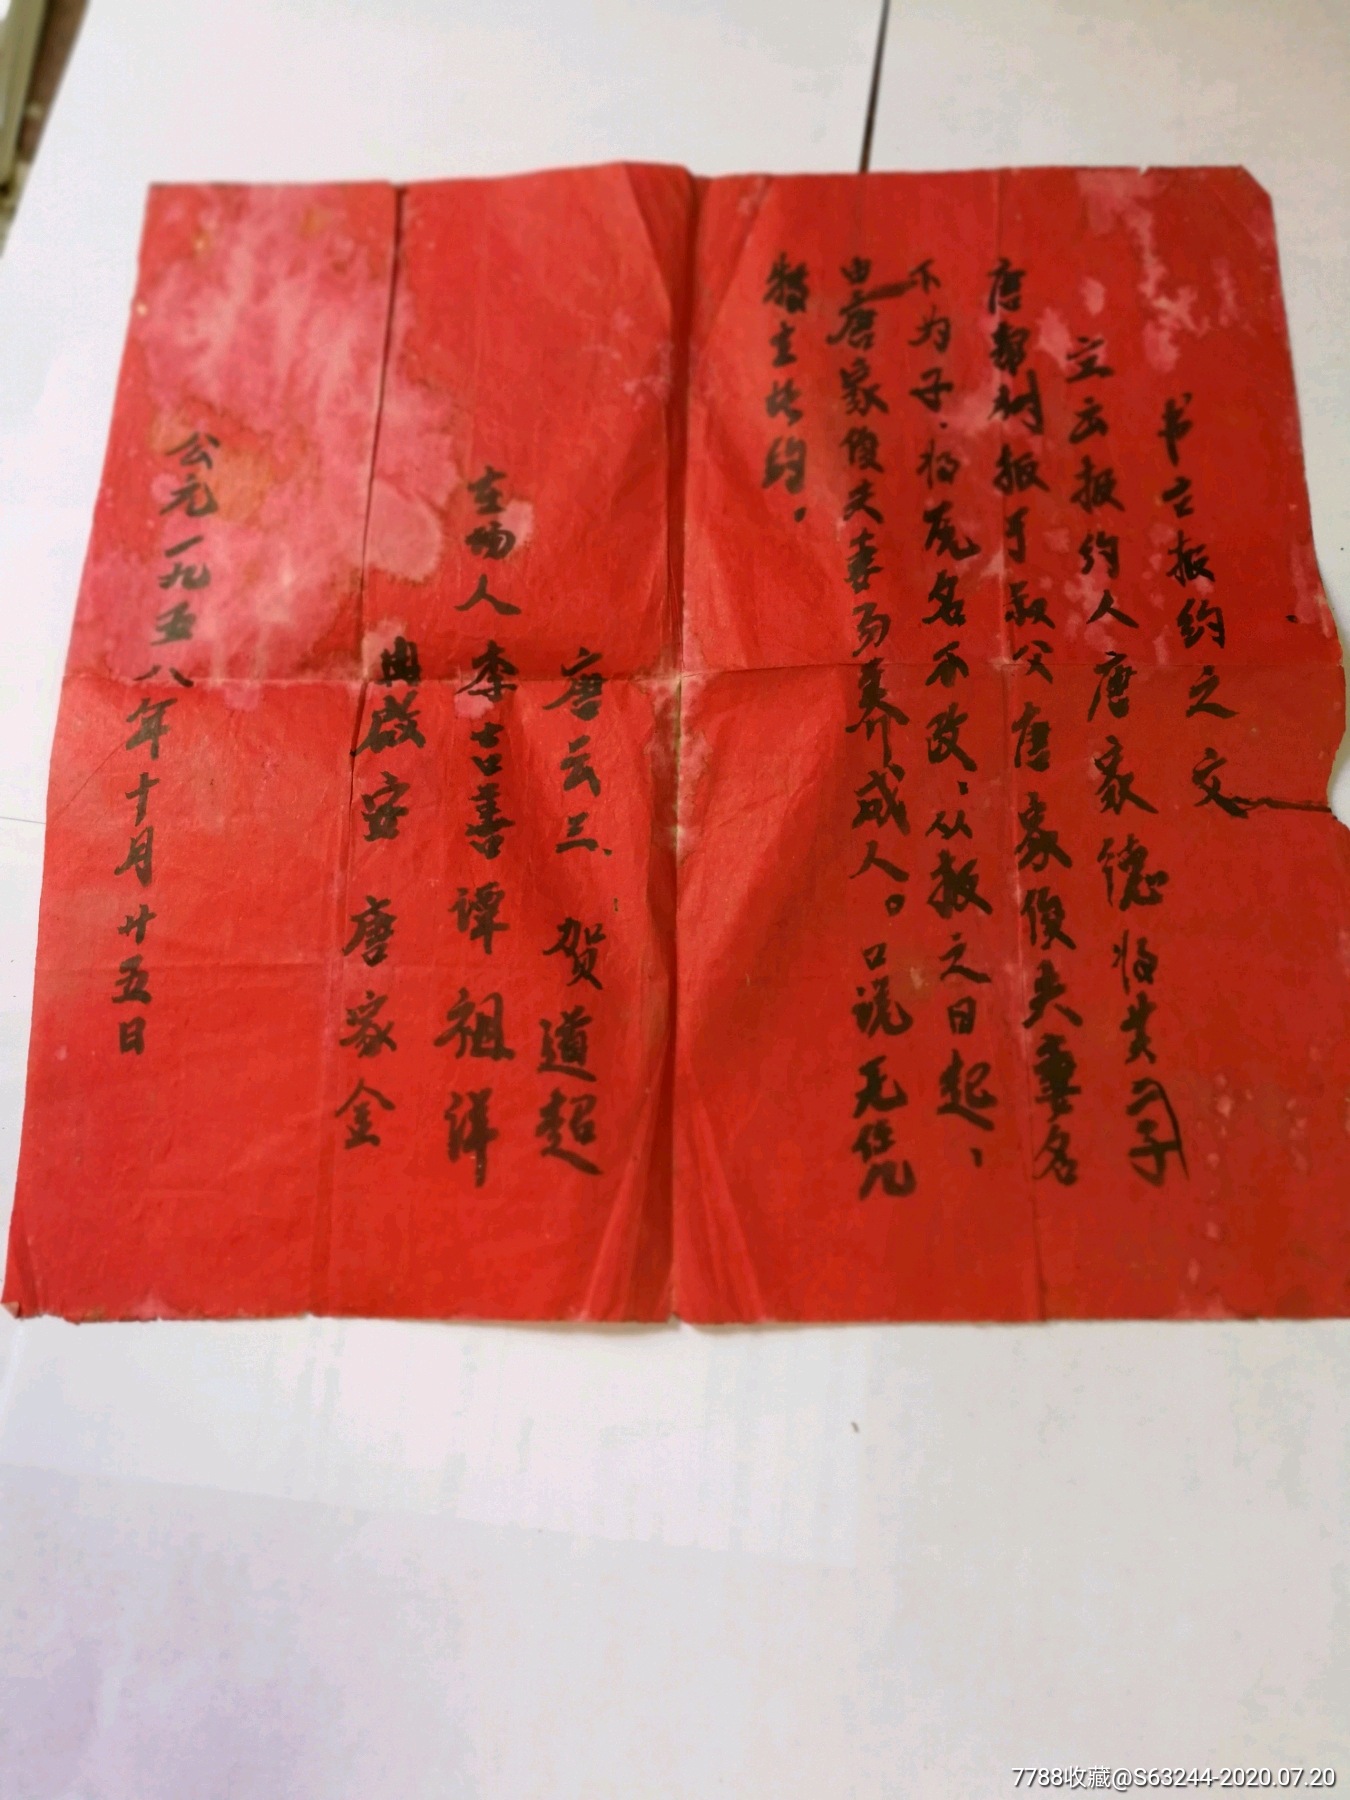 书立报约之文
立云报约人唐家德将其二子
唐帮树报于叔父唐家俊夫妻名
下为子，将庑名不改，从报之日起，
由唐家俊夫妻易养成人。口说无凭
特立此约。
唐云三、贺道超
在场人李吉善谭祖洋
冉启安唐家金
公元一九五八年十月廿五日
7788收藏@S63244-2020.07.20